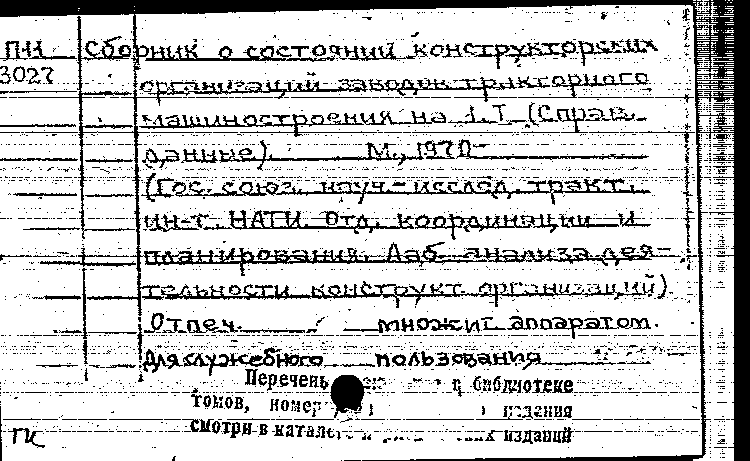 П11 Сборник о состоянии конструкторских
3027 организаций заводов тракторного
машиностроения на 1.I (Справ.
данные). М., 1970-
(Гос. союз. науч.-исслед. тракт.
ин-т. НАТИ. Отд. координации и
планирования. Лаб. анализа дея-
тельности конструкт. организаций)
Отпеч. множит. аппаратом.
Для служебного пользования
Перечень в библиотеке
томов, номер издания
смотри в катал изданий
ГК